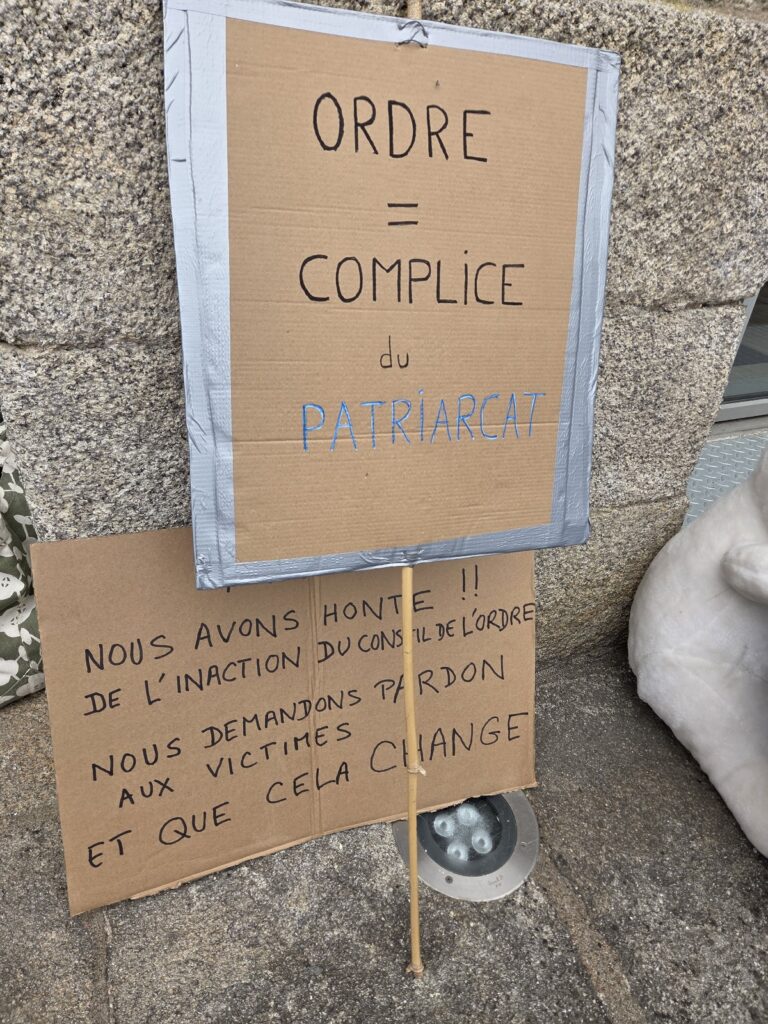 ORDRE
=
COMPLICE
du
PATRIARCAT
NOUS AVONS HONTE !!
DE L'INACTION DU CONSEIL DE L'ORDRE
NOUS DEMANDONS PARDON
AUX VICTIMES
ET QUE CELA CHANGE